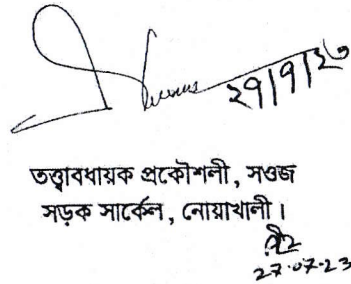 ২৭/৭/২৩
তত্ত্বাবধায়ক প্রকৌশলী, সওজ
সড়ক সার্কেল, নোয়াখালী।
27.07.23